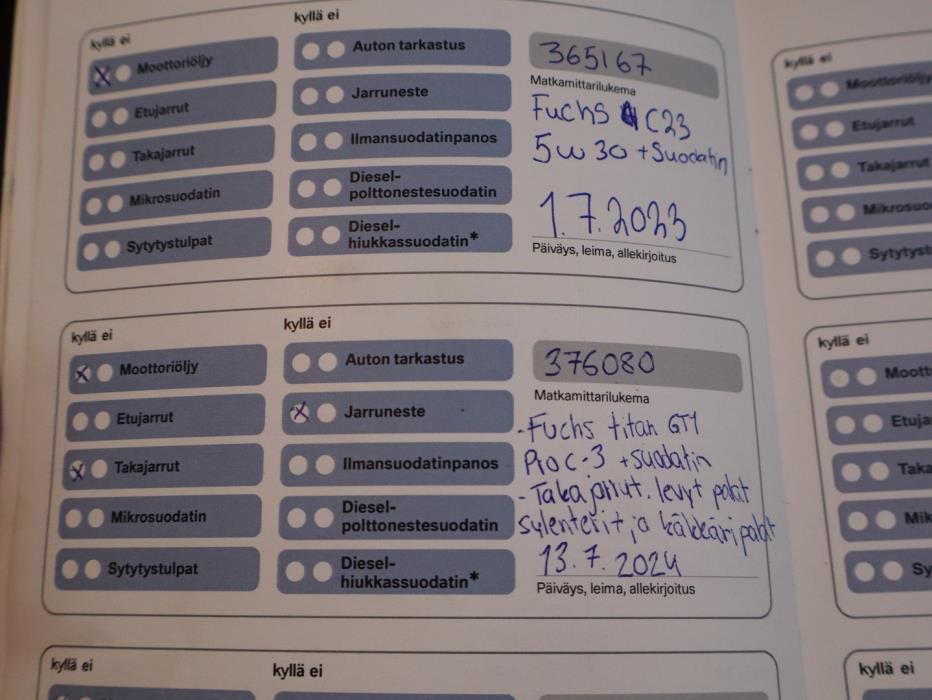 kyllä ei
kyllä ei
X Moottoriöljy
Auton tarkastus
365167
Etujarrut
Jarruneste
Matkamittarilukema
Takajarrut
Ilmansuodatinpanos
Fuchs C23
Mikrosuodatin
Diesel-
polttonestesuodatin
5w30 + Suodatin
Sytytystulpat
Diesel-
hiukkassuodatin*
1.7.2023
Päiväys, leima, allekirjoitus
kyllä ei
kyllä ei
X Moottoriöljy
Auton tarkastus
376080
Etujarrut
X Jarruneste
Matkamittarilukema
X Takajarrut
Ilmansuodatinpanos
-Fuchs titan GT1
Pro C-3 + suodatin
Mikrosuodatin
Diesel-
polttonestesuodatin
- Takajrrut. levyt palat
sylenterit, ja käkkäripalat
Sytytystulpat
Diesel-
hiukkassuodatin*
13.7.2024
Päiväys, leima, allekirjoitus
kyllä ei
kyllä ei
kyllä ei
Moottoriöljy
Etujarrut
Takajarrut
Mikrosuo
Sytytyst
kyllä ei
Mootto
Etuja
Taka
Mik
Sy
kyllä ei